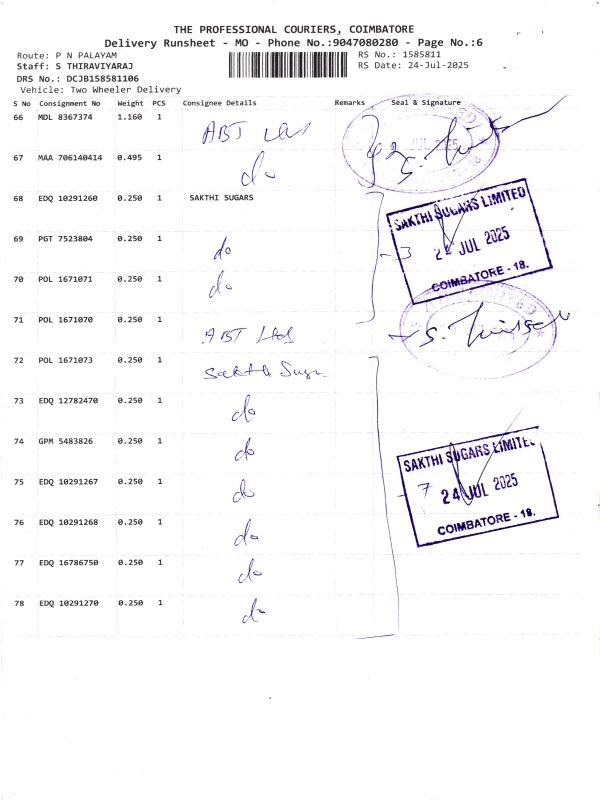 THE PROFESSIONAL COURIERS, COIMBATORE
Delivery Runsheet - MO - Phone No.:9047080280 - Page No.:6
Route: P N PALAYAM RS No.: 1585811
Staff: S THIRAVIYARAJ RS Date: 24-Jul-2025
DRS No.: DCJB158581106
Vehicle: Two Wheeler Delivery
S No Consignment No Weight PCS Consignee Details Remarks Seal & Signature
66 MDL 8367374 1.160 1 ABT
67 MAA 706140414 0.495 1 do
68 EDQ 10291260 0.250 1 SAKTHI SUGARS
SAKTHI SUGARS LIMITED
24 JUL 2025
COIMBATORE - 18.
69 PGT 7523804 0.250 1 do
3
70 POL 1671071 0.250 1 do
71 POL 1671070 0.250 1 ABT Ltd
72 POL 1671073 0.250 1 Sakthi Sugar
73 EDQ 12782470 0.250 1 do
74 GPM 5483826 0.250 1 do
SAKTHI SUGARS LIMITED
7 24 JUL 2025
COIMBATORE - 18.
75 EDQ 10291267 0.250 1 do
76 EDQ 10291268 0.250 1 do
77 EDQ 16786750 0.250 1 do
78 EDQ 10291270 0.250 1 do